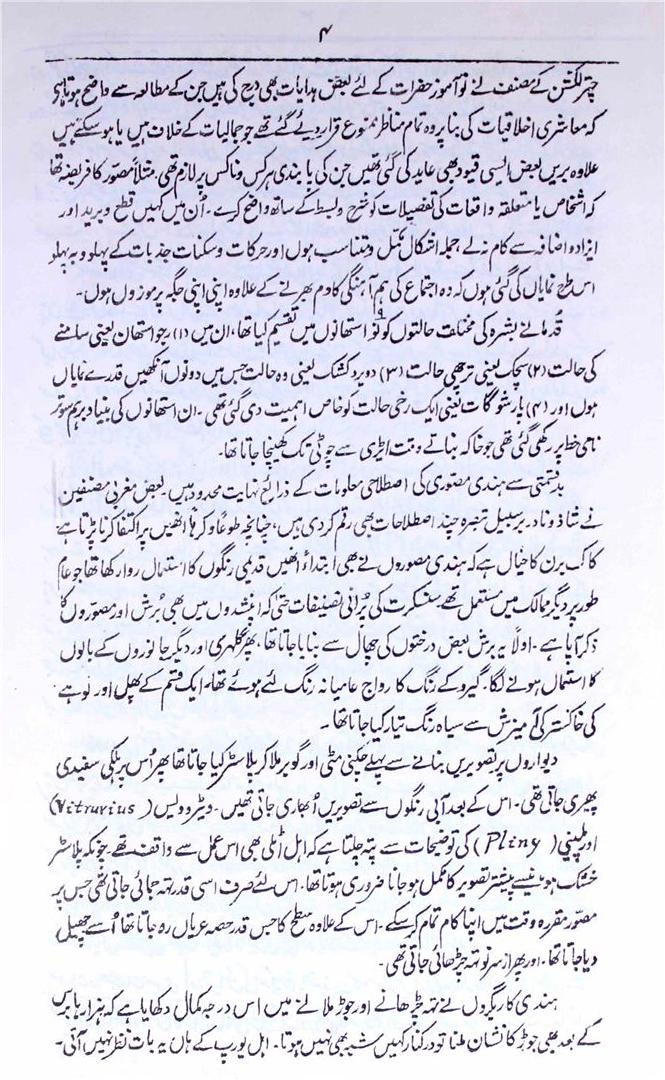 ۴
چتر لکشن کے مصنف نے نو آموز حضرات کے لئے بعض ہدایات بھی درج کی ہیں جن کے مطالعہ سے واضح ہوتا ہے
کہ معاشری اخلاقیات کی بنا پر وہ تمام مناظر ممنوع قرار دیئے گئے تھے جو جمالیات کے خلاف ہیں یا ہو سکتے ہیں
علاوہ بریں بعض ایسی قیود بھی عاید کی گئی تھیں جن کی پابندی ہر کس و ناکس پر لازم تھی۔ مثلاً مصور کا فریضہ تھا
کہ اشخاص یا متعلقہ واقعات کی تفصیلات توضیح و بسط کے ساتھ واضح کرے۔ اُن میں کہیں قطع و برید اور
ایزاد و اضافہ سے کام نہ لے جملہ اشکال مکمل و متناسب ہوں اور حرکات و سکنات جذبات کے پہلو بہ پہلو
اس طرح نمایاں کی گئی ہوں کہ وہ اجتماع کی ہم آہنگی کا دم بھرنے کے علاوہ اپنی اپنی جگہ پر موزوں ہوں۔
قدما نے بشرہ کی مختلف حالتوں کو نو ۹ استھانوں میں تقسیم کیا تھا، ان میں (۱) رجو استھان یعنی سامنے
کی حالت (۲) سچک یعنی ترچھی حالت (۳) دویرد کشک یعنی وہ حالت جس میں دونوں آنکھیں قدرے عیاں
ہوں اور (۴) پارشوگات یعنی ایک رخی حالت کو خاص اہمیت دی گئی تھی۔ ان استھانوں کی بنیاد برہم سوتر
نامی خط پر رکھی گئی تھی جو خاکہ بناتے وقت ایڑی سے چوٹی تک کھینچا جاتا تھا۔
بدقسمتی سے ہندی مصوری کی اصطلاحی معلومات کے ذرائع نہایت محدود ہیں۔ بعض مغربی مصنفین
نے شاذ و نادر برسبیل تبصرہ چند اصطلاحات بھی رقم کر دی ہیں، چنانچہ طوعاً و کرہاً انھیں پر اکتفا کرنا پڑتا ہے
کاک برن کا خیال ہے کہ ہندی مصوروں نے بھی ابتداءً انھیں قدیمی رنگوں کا استعمال روا رکھا تھا جو عام
طور پر دیگر ممالک میں مستعمل تھے۔ سنسکرت کی پُرانی تصنیفات حتیٰ کہ اپنشدوں میں بھی بُرش اور مصوّروں کا
ذکر آیا ہے۔ اولاً یہ برش بعض درختوں کی چھال سے بنایا جاتا تھا، پھر گلہری اور دیگر جانوروں کے بالوں
کا استعمال ہونے لگا۔ گیرو کے رنگ کا رواج عامیانہ رنگ لئے ہوئے تھا۔ ایک قسم کے پھل اور لوہے
کی خاکستر کی آمیزش سے سیاہ رنگ تیار کیا جاتا تھا۔
دیواروں پر تصویریں بنانے سے پہلے چکنی مٹی اور گوبر ملا کر پلاسٹر کیا جاتا تھا پھر اُس پر ہلکی سفیدی
پھیری جاتی تھی۔ اس کے بعد آبی رنگوں سے تصویریں اُبھاری جاتی تھیں۔ ویٹرو ولیس (Vitruvius)
اور پلینی (Pliny) کی توضیحات سے پتہ چلتا ہے کہ اہل اٹلی بھی اس عمل سے واقف تھے۔ چونکہ پلاسٹر
خشک ہونے سے پیشتر تصویر کا مکمل ہو جانا ضروری ہوتا تھا۔ اس لئے صرف اسی قدر تہ جمائی جاتی تھی جس پر
مصوّر مقررہ وقت میں اپنا کام تمام کر سکے۔ اس کے علاوہ سطح کا جس قدر حصہ عریاں رہ جاتا تھا اُسے چھیل
دیا جاتا تھا۔ اور پھر از سر نو تہ چڑھائی جاتی تھی۔
ہندی کاریگروں نے تہ چڑھانے اور جوڑ ملانے میں اس درجہ کمال دکھایا ہے کہ ہزارہا برس
کے بعد بھی جوڑ کا نشان ملنا تو درکنار کہیں شبہ بھی نہیں ہوتا۔ اہل یورپ کے ہاں یہ بات نظر نہیں آتی۔